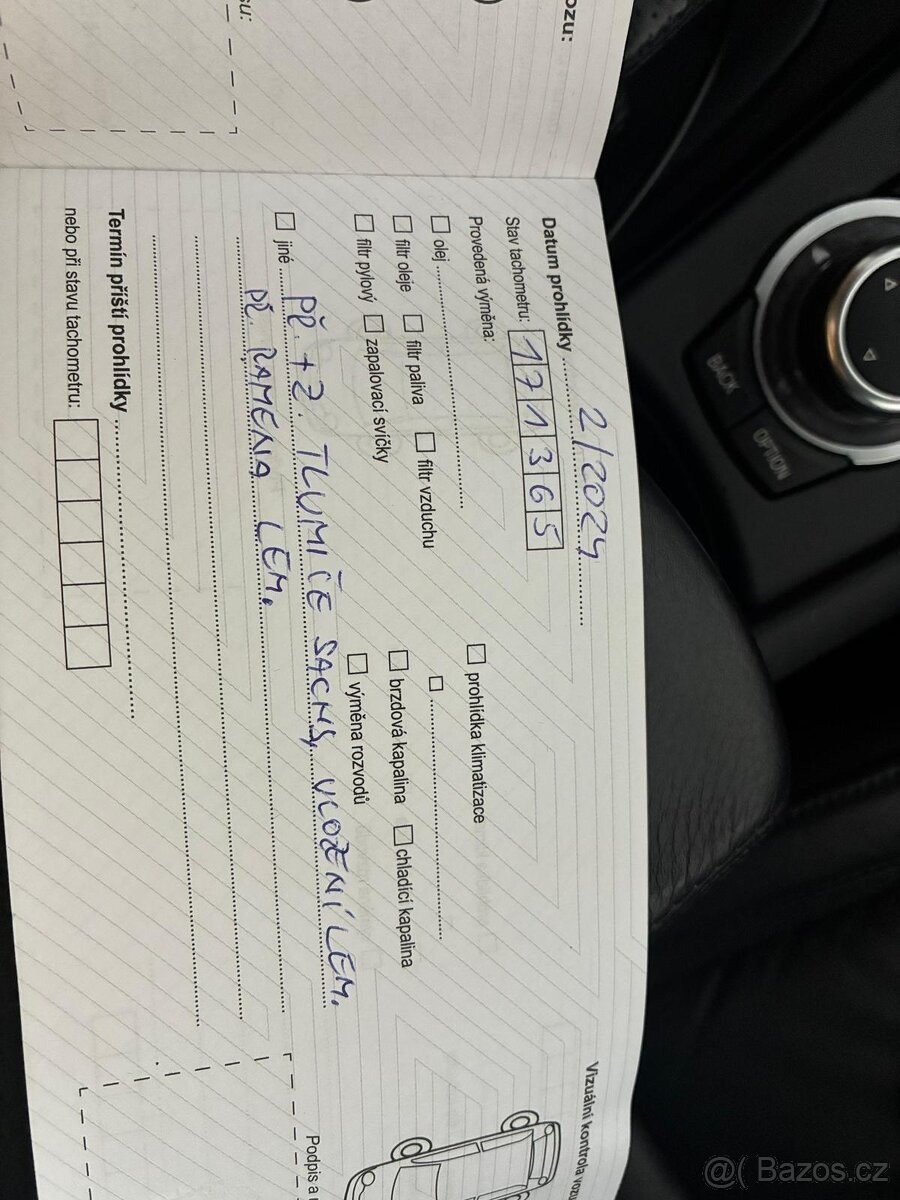 ozu:
su:
Datum prohlídky 2/2024
Stav tachometru: 171365
Provedená výměna:
olej
filtr oleje filtr paliva filtr vzduchu
filtr pylový zapalovací svíčky
prohlídka klimatizace
brzdová kapalina chladící kapalina
výměna rozvodů
jiné PŘ. + Z. TLUMIČE SACHS, ULOŽENÍ LEM.
PŘ. RAMENA LEM.
Termín příští prohlídky
nebo při stavu tachometru:
Vizuální kontrola vozu
Podpis a
BACK
OPTION
@( Bazos.cz